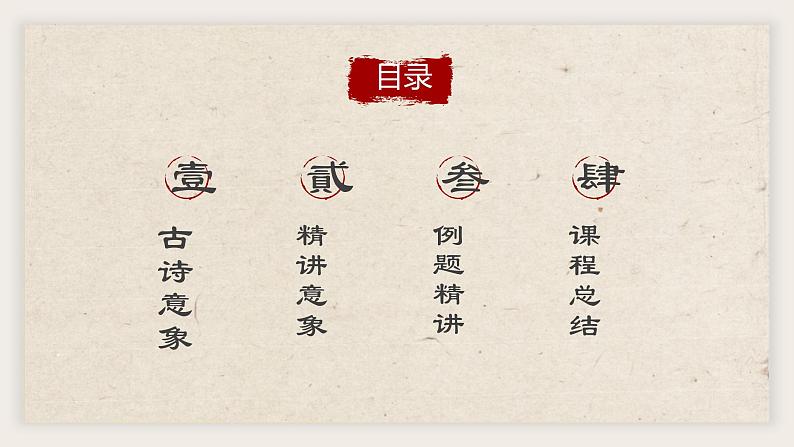 目录
壹
古诗意象
貳
精讲意象
叁
例题精讲
肆
课程总结